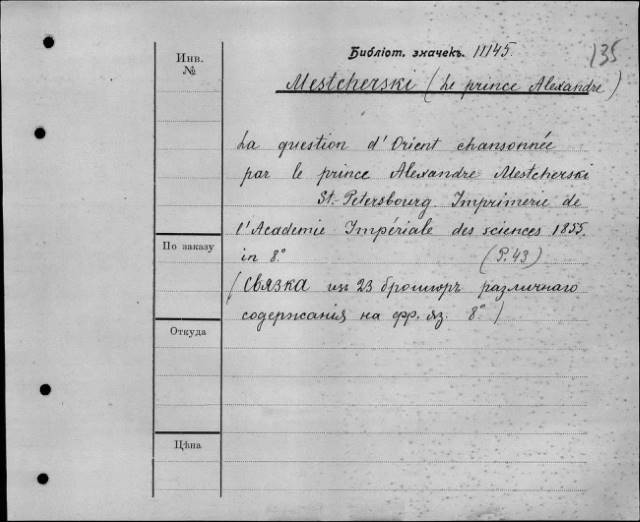 Инв.
№
Библіот. значекъ. 11145.
135
Mestcherski (Le prince Alexandre)
La question d'Orient chansonnée
par le prince Alexandre Mestcherski
St.-Petersbourg. Imprimerie de
l'Academie Impériale des sciences 1855.
in 8.° (P. 43)
(Связка изъ 23 брошюръ различнаго
содержанія на фр. яз. 8°)
По заказу
Откуда
Цѣна